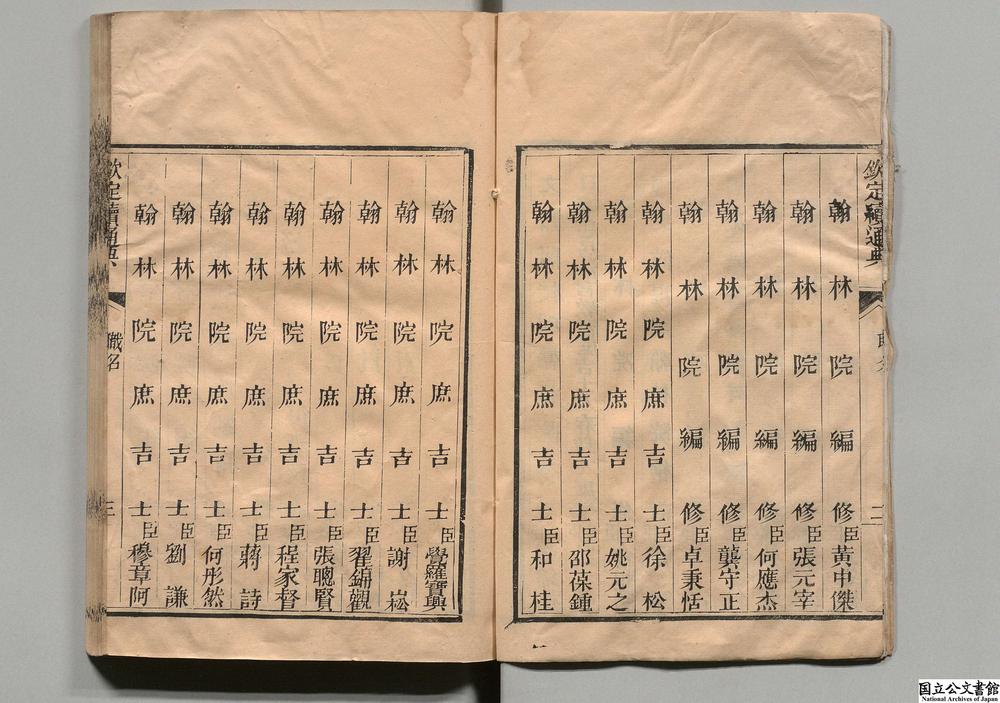 欽定續通典
二
翰林院編修臣黃中傑
翰林院編修臣張元宰
翰林院編修臣何應杰
翰林院編修臣龔守正
翰林院編修臣卓秉恬
翰林院庶吉士臣徐松
翰林院庶吉士臣姚元之
翰林院庶吉士臣邵葆鍾
翰林院庶吉士臣和桂
翰林院庶吉士臣覺羅寶興
翰林院庶吉士臣謝崧
翰林院庶吉士臣翟錦觀
翰林院庶吉士臣張聰賢
翰林院庶吉士臣程家督
翰林院庶吉士臣蔣詩
翰林院庶吉士臣何彤然
翰林院庶吉士臣劉謙
翰林院庶吉士臣穆章阿
欽定續通典
職名
三
国立公文書館
National Archives of Japan